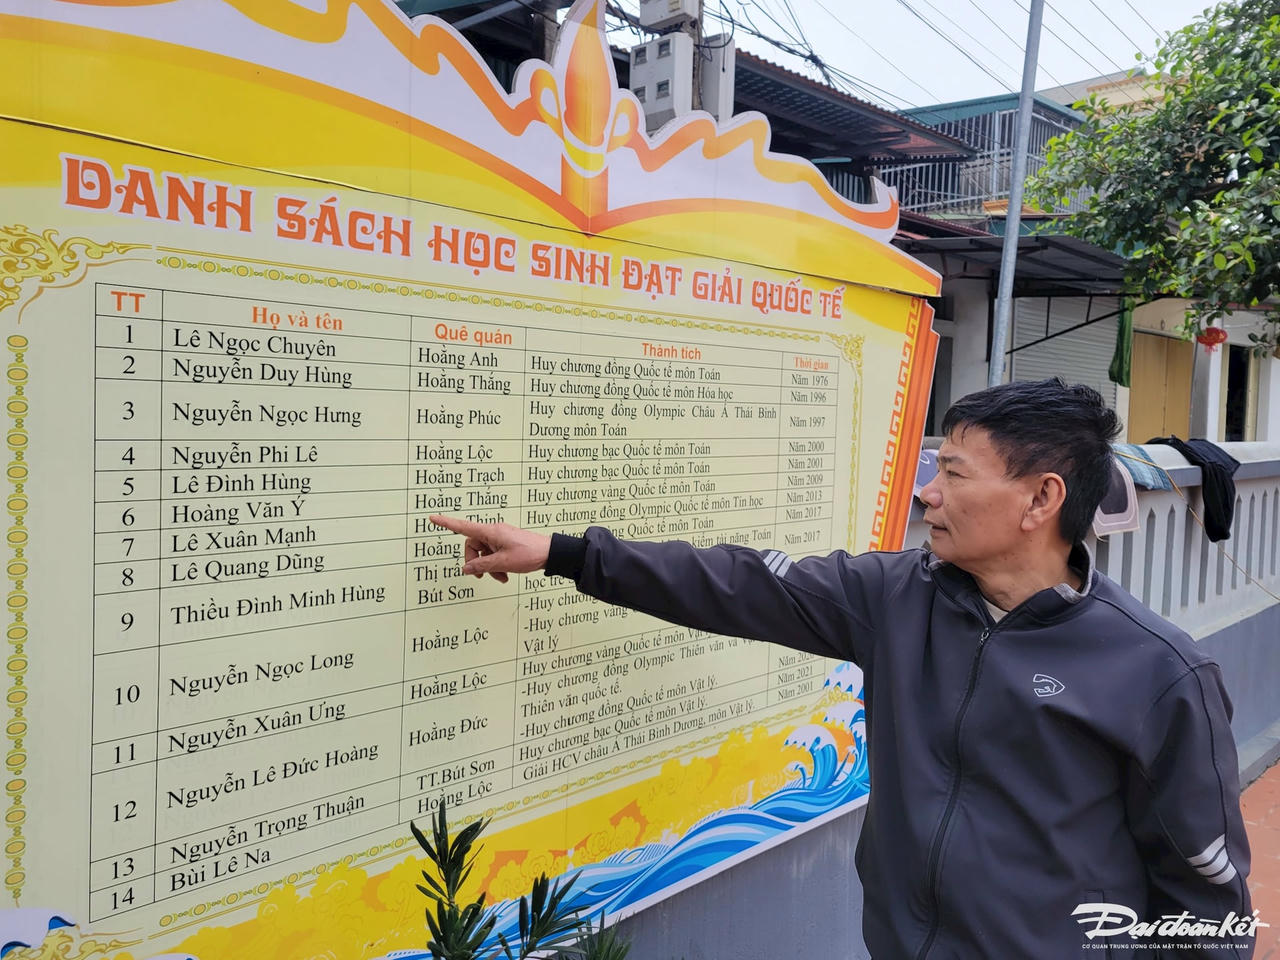 DANH SÁCH HỌC SINH ĐẠT GIẢI QUỐC TẾ
TT Họ và tên Quê quán Thành tích Thời gian
1 Lê Ngọc Chuyên Hoằng Anh Huy chương đồng Quốc tế môn Toán Năm 1976
2 Nguyễn Duy Hùng Hoằng Thắng Huy chương đồng Quốc tế môn Hóa học Năm 1996
3 Nguyễn Ngọc Hưng Hoằng Phúc Huy chương đồng Olympic Châu Á Thái Bình
Dương môn Toán Năm 1997
4 Nguyễn Phi Lê Hoằng Lộc Huy chương bạc Quốc tế môn Toán Năm 2000
5 Lê Đình Hùng Hoằng Trạch Huy chương bạc Quốc tế môn Toán Năm 2001
6 Hoàng Văn Ý Hoằng Thắng Huy chương vàng Quốc tế môn Toán Năm 2009
7 Lê Xuân Mạnh Thịnh Huy chương đồng Olympic Quốc tế môn Tin học Năm 2013
8 Lê Quang Dũng Hoằng Quốc tế môn Toán Năm 2017
9 Thiều Đình Minh Hùng Thị trấn
Bút Sơn kiểm tài năng Toán
học trẻ Năm 2017
10 Nguyễn Ngọc Long Hoằng Lộc -Huy chương
-Huy chương vàng
Vật lý
11 Nguyễn Xuân Ưng Hoằng Lộc Huy chương vàng Quốc tế môn Vật lý
12 Nguyễn Lê Đức Hoàng Hoằng Đức -Huy chương đồng Olympic Thiên văn và Vật
Thiên văn quốc tế.
-Huy chương đồng Quốc tế môn Vật lý.
13 Nguyễn Trọng Thuận TT.Bút Sơn Huy chương bạc Quốc tế môn Vật lý. Năm 2021
14 Bùi Lê Na Hoằng Lộc Giải HCV châu Á Thái Bình Dương, môn Vật lý. Năm 2001
Đại đoàn Kết
CƠ QUAN TRUNG ƯƠNG CỦA MẶT TRẬN TỔ QUỐC VIỆT NAM